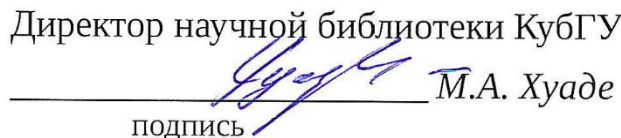 Директор научной библиотеки КубГУ
М.А. Хуаде
подпись